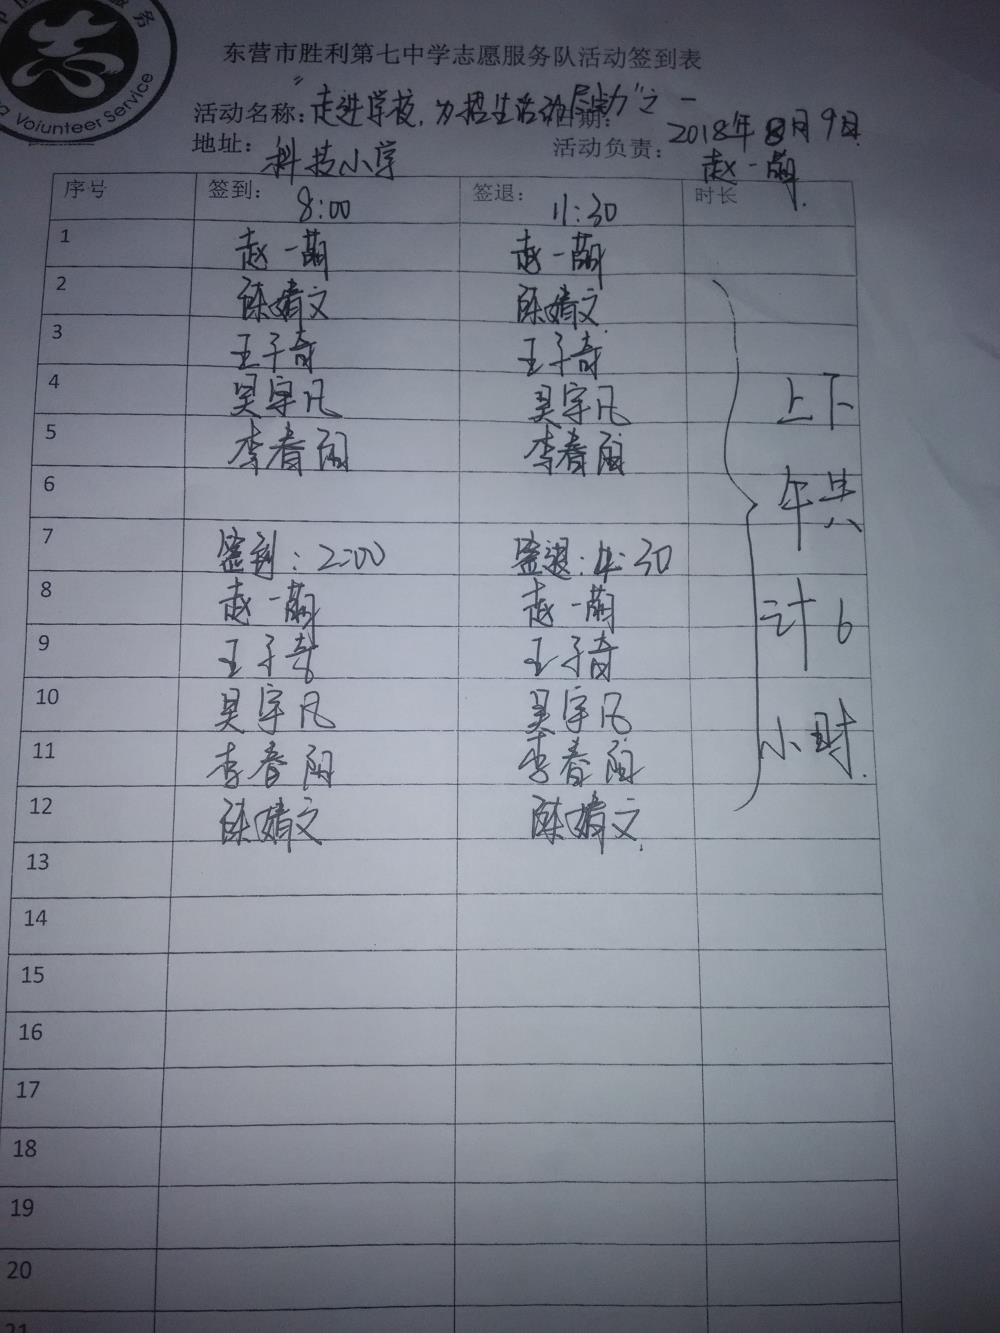 Volunteer Service
东营市胜利第七中学志愿服务队活动签到表
活动名称：“走进学校，为招生活动尽力”之一
日期： 2018年8月9日
地址： 科技小学
活动负责： 赵一萌
序号 签到： 8:00 签退： 11:30 时长
1 赵一萌 赵一萌
2 陈婧文 陈婧文
3 王子奇 王子奇
4 吴宇凡 吴宇凡
5 李春阳 李春阳
6
7 签到：2:00 签退：4:30
8 赵一萌 赵一萌
9 王子奇 王子奇
10 吴宇凡 吴宇凡
11 李春阳 李春阳
12 陈婧文 陈婧文
上下
午共
计6
小时.
13
14
15
16
17
18
19
20
21